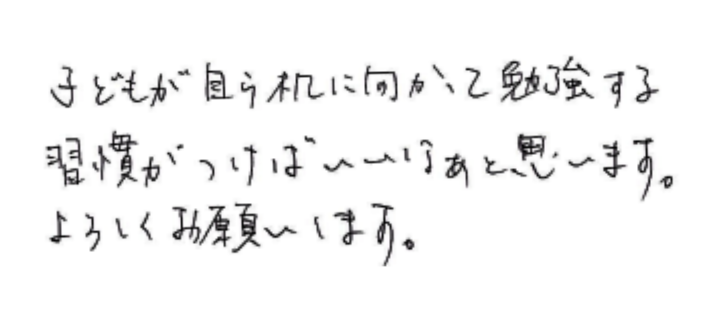 子どもが自ら机に向かって勉強する
習慣がつけばいいなぁと思います。
よろしくお願いします。